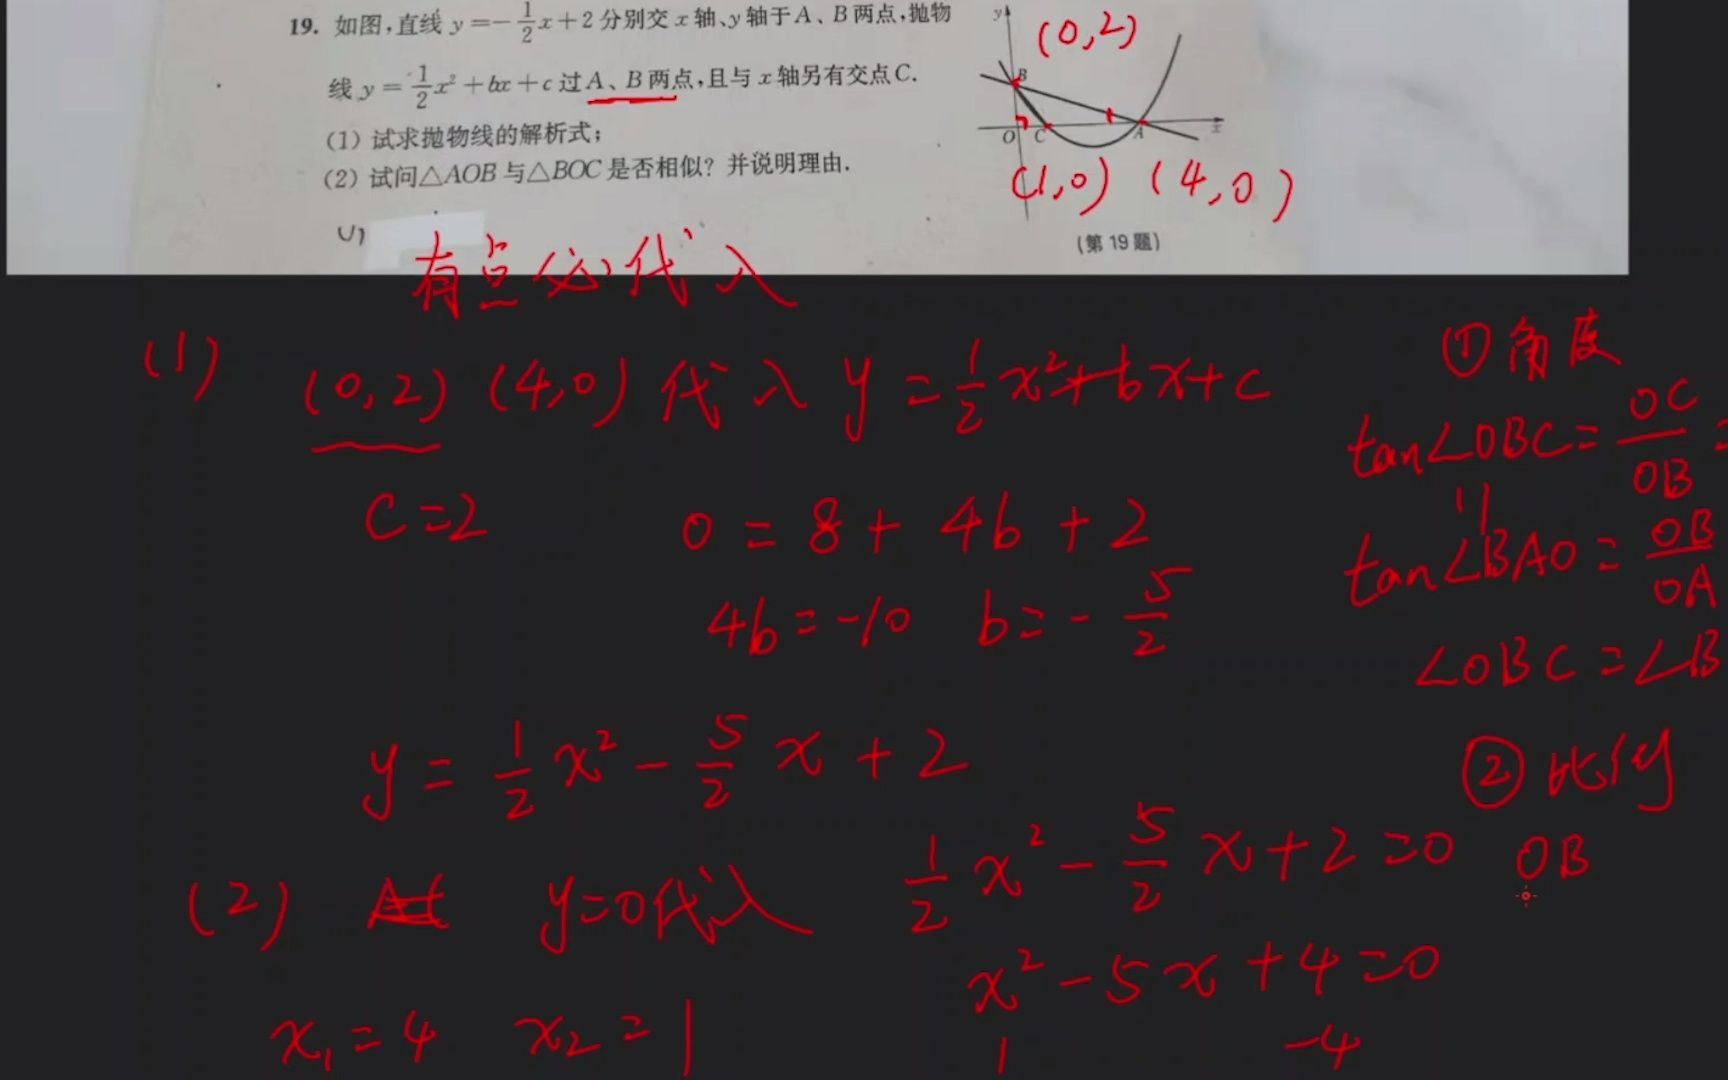 19. 如图,直线 y=-1/2x+2 分别交 x 轴、y 轴于 A、B 两点,抛物
线 y=1/2x²+bx+c 过 A、B 两点,且与 x 轴另有交点 C.
(1) 试求抛物线的解析式;
(2) 试问△AOB 与△BOC 是否相似? 并说明理由.
y
(0,2)
B
O C A x
(1,0) (4,0)
(第 19 题)
有点必代入
(1) (0,2) (4,0) 代入 y=1/2x²+bx+c
c=2 0=8+4b+2
4b=-10 b=-5/2
y=1/2x²-5/2x+2
(2) y=0代入 1/2x²-5/2x+2=0
x²-5x+4=0
x₁=4 x₂=1 1 -4
①角度
tan∠OBC=OC/OB=
tan∠BAO=OB/OA
∠OBC=∠B
②比例
OB